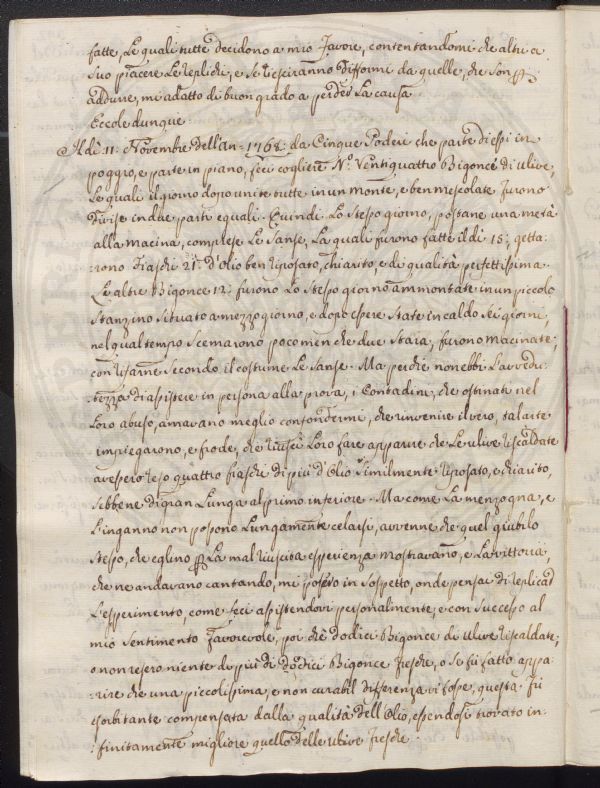 fatte, Le quali tutte decidono a mio favore, contentandomi che altri a
suo piacere Le replichi, e se riesciranno difformi da quelle, che son p
addurre, mi adatto di buon grado a perder La causa.
Eccole dunque.
Il dì 11: Novembre dell'An= 1768: da Cinque Poderi che parte di essi in
poggio, e parte in piano, feci cogliere N.º Ventiquattro Bigonce di ulive,
Le quali il giorno dopo unite tutte in un monte, e ben mescolate furono
divise in due parti eguali. Quindi Lo stesso giorno, portane una metà
alla macina, comprese Le Sanse, La quali furono fatte il dì 15: getta:
rono fiaschi 21: d'Olio ben riposato, chiarito, e di qualità perfettissima.
Le altre Bigonce 12: furono Lo stesso giorno ammontate in un piccolo
stanzino situato a mezzo giorno, e dopo essere state in caldo sei giorni,
nel qual tempo scemarono poco men che due staia, furono macinate,
con rifarne secondo il costume Le Sanse. Ma perchè non ebbi L'avvedu:
:tezza di assistere in persona alla prova, i Contadini, che ostinati nel
Loro abuso, amavano meglio confondermi, che rinvenire il vero, tal arte
impiegarono, e frode, che riuscì Loro fare apparire che Le ulive riscaldate
avessero reso quattro fiaschi di più d'Olio similmente riposato, e chiarito,
sebbene di gran Lunga al primo inferiore. Ma come La menzogna, e
L'inganno non possono Lungamente celarsi, avvenne che quel giubilo
stesso, che eglino p La mal riuscita esperienza mostravano, e La vittoria,
che ne andavano cantando, mi posero in sospetto, onde pensai di replicar
L'esperimento, come feci assistendovi personalmente, e con successo al
mio sentimento favorevole, poichè dodici Bigonce di ulive riscaldate,
o non resero niente di più di dodici Bigonce fresche, o se fu fatto appa
:rire che una piccolissima, e non curabil differenza vi fosse, questa fu
esorbitante compensata dalla qualità dell'Olio, essendosi trovato in:
:finitamente migliore quello delle ulive fresche.